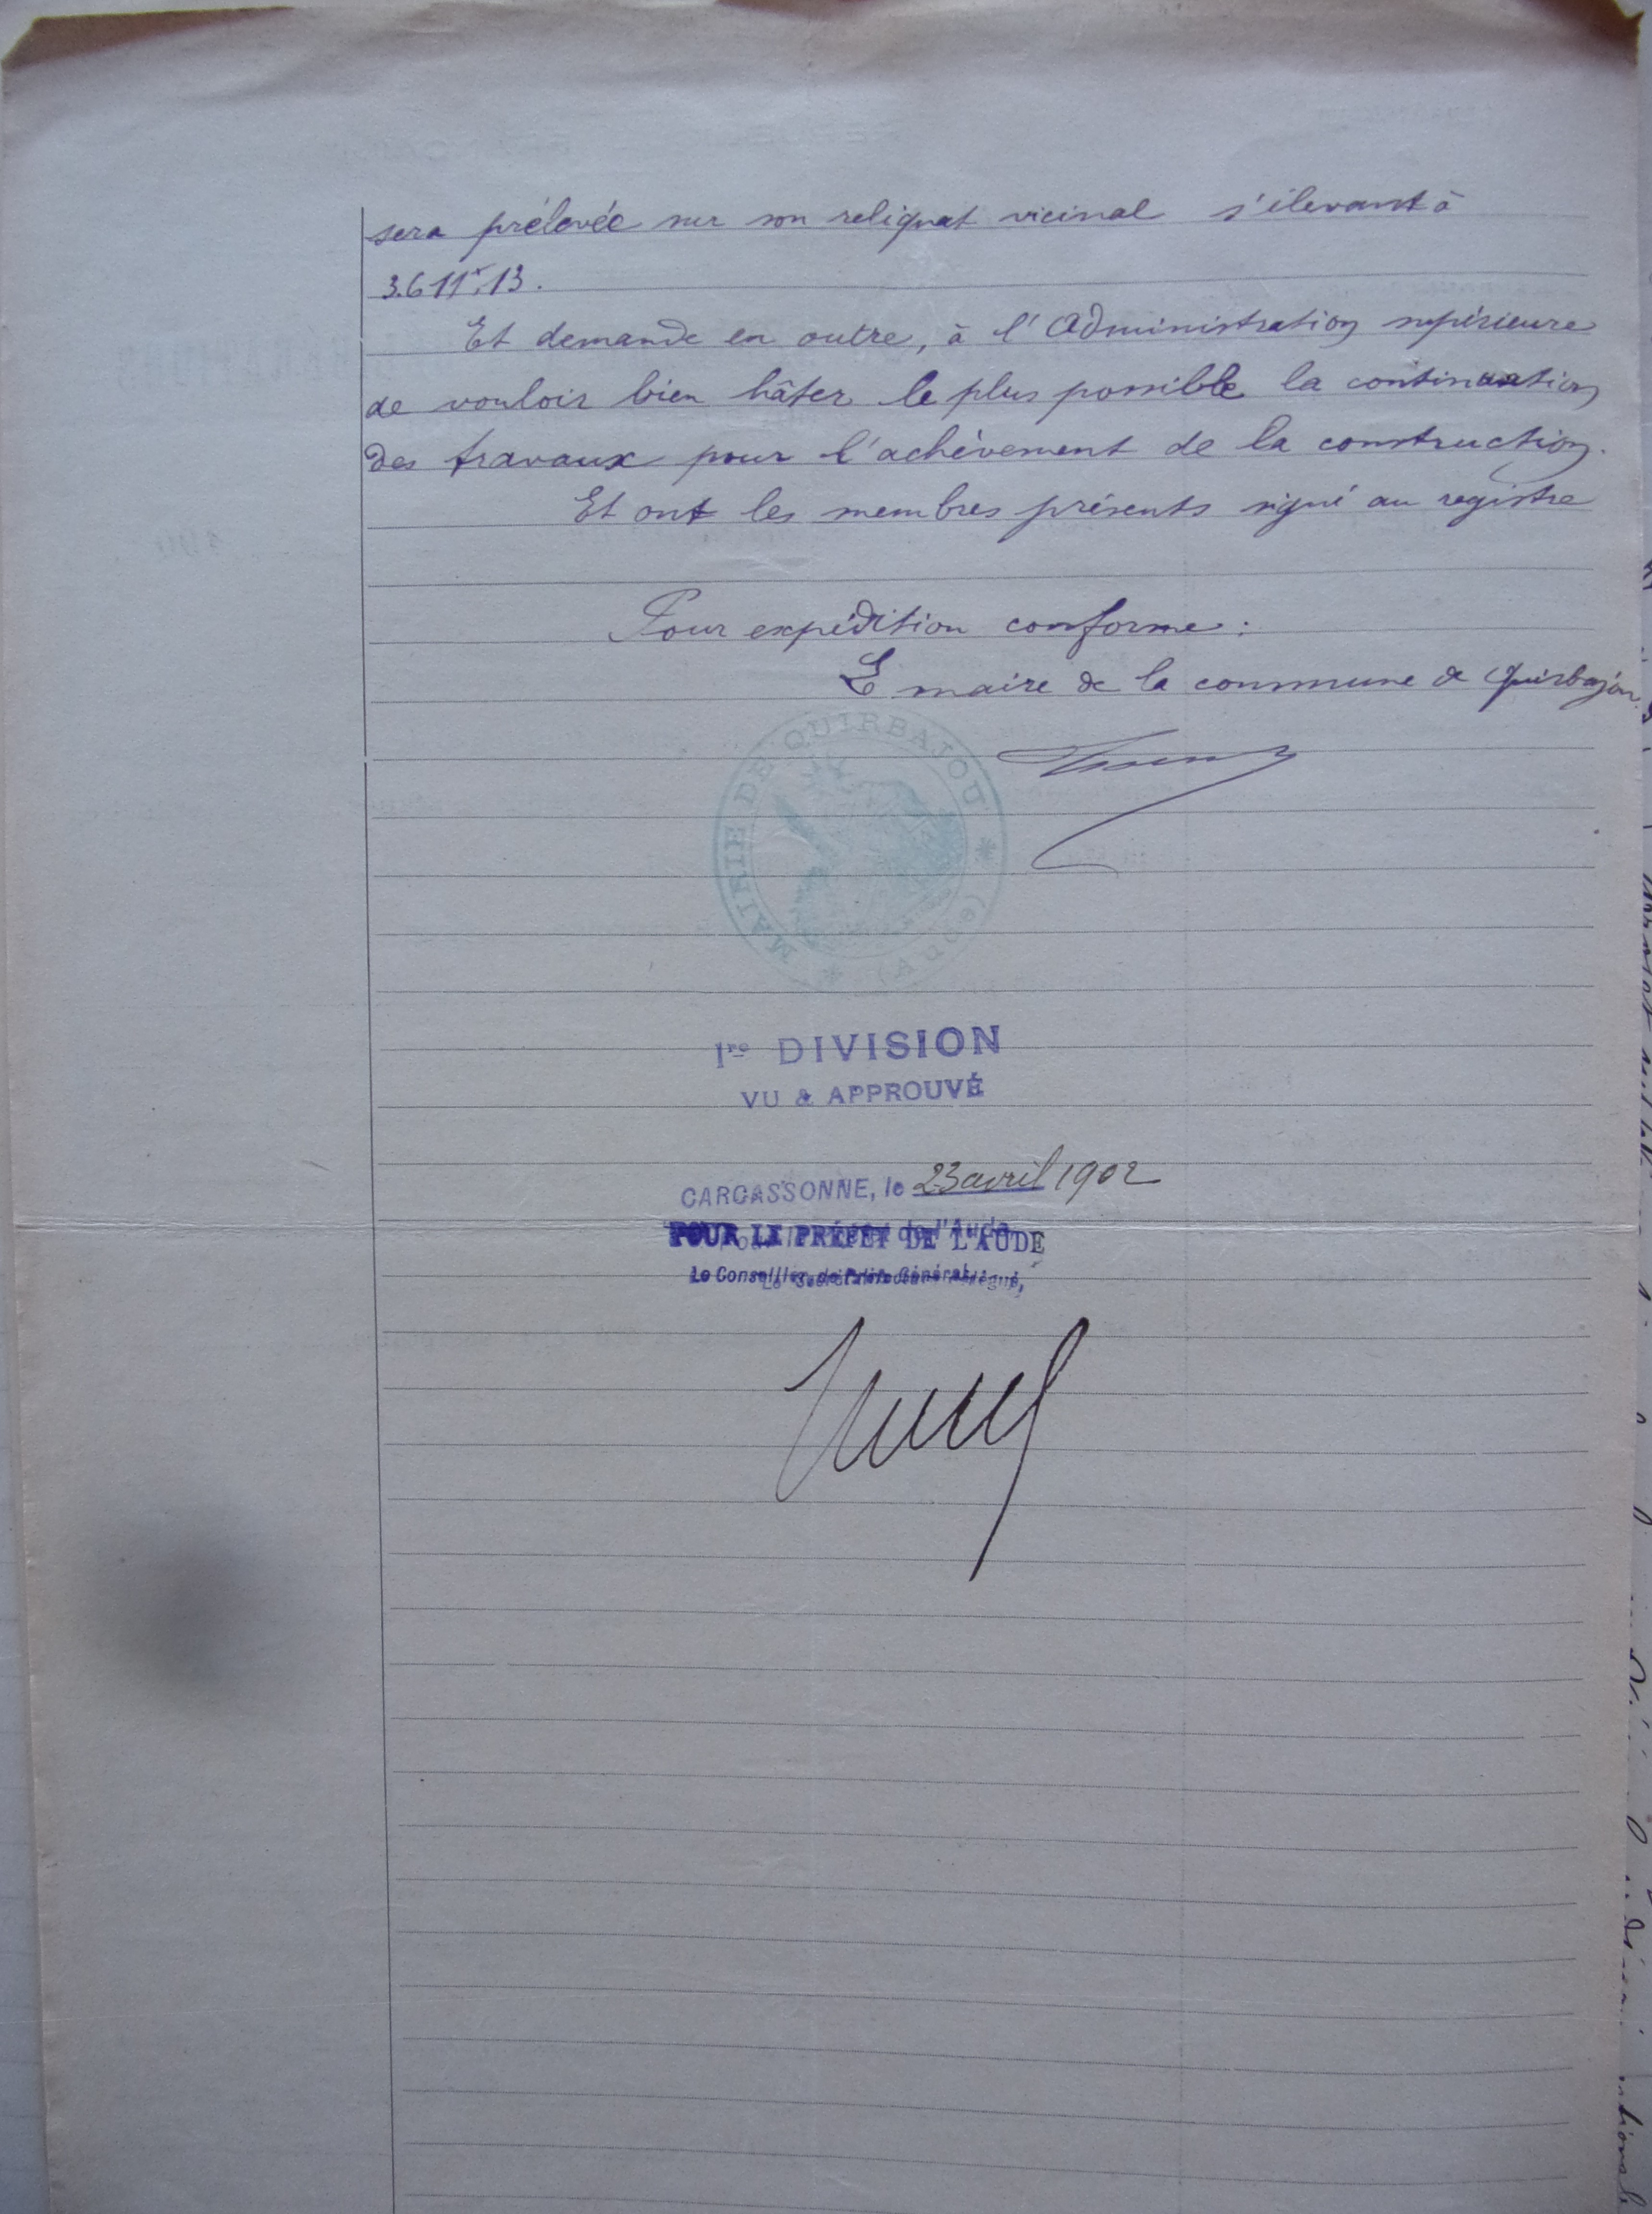 sera prélevée sur son reliquat vicinal s'élevant à
3.611f,13.
Et demande en outre, à l'Administration supérieure
de vouloir bien hâter le plus possible la continuation
des travaux pour l'achèvement de la construction.
Et ont les membres présents signé au registre
Pour expédition conforme :
L maire de la commune de Quirbajou
MAIRIE DE QUIRBAJOU
(Aude)
1re DIVISION
VU & APPROUVÉ
CARCASSONNE, le 23 avril 1902
POUR LE PRÉFET DE L'AUDE
Le Conseiller de Préfecture délégué,